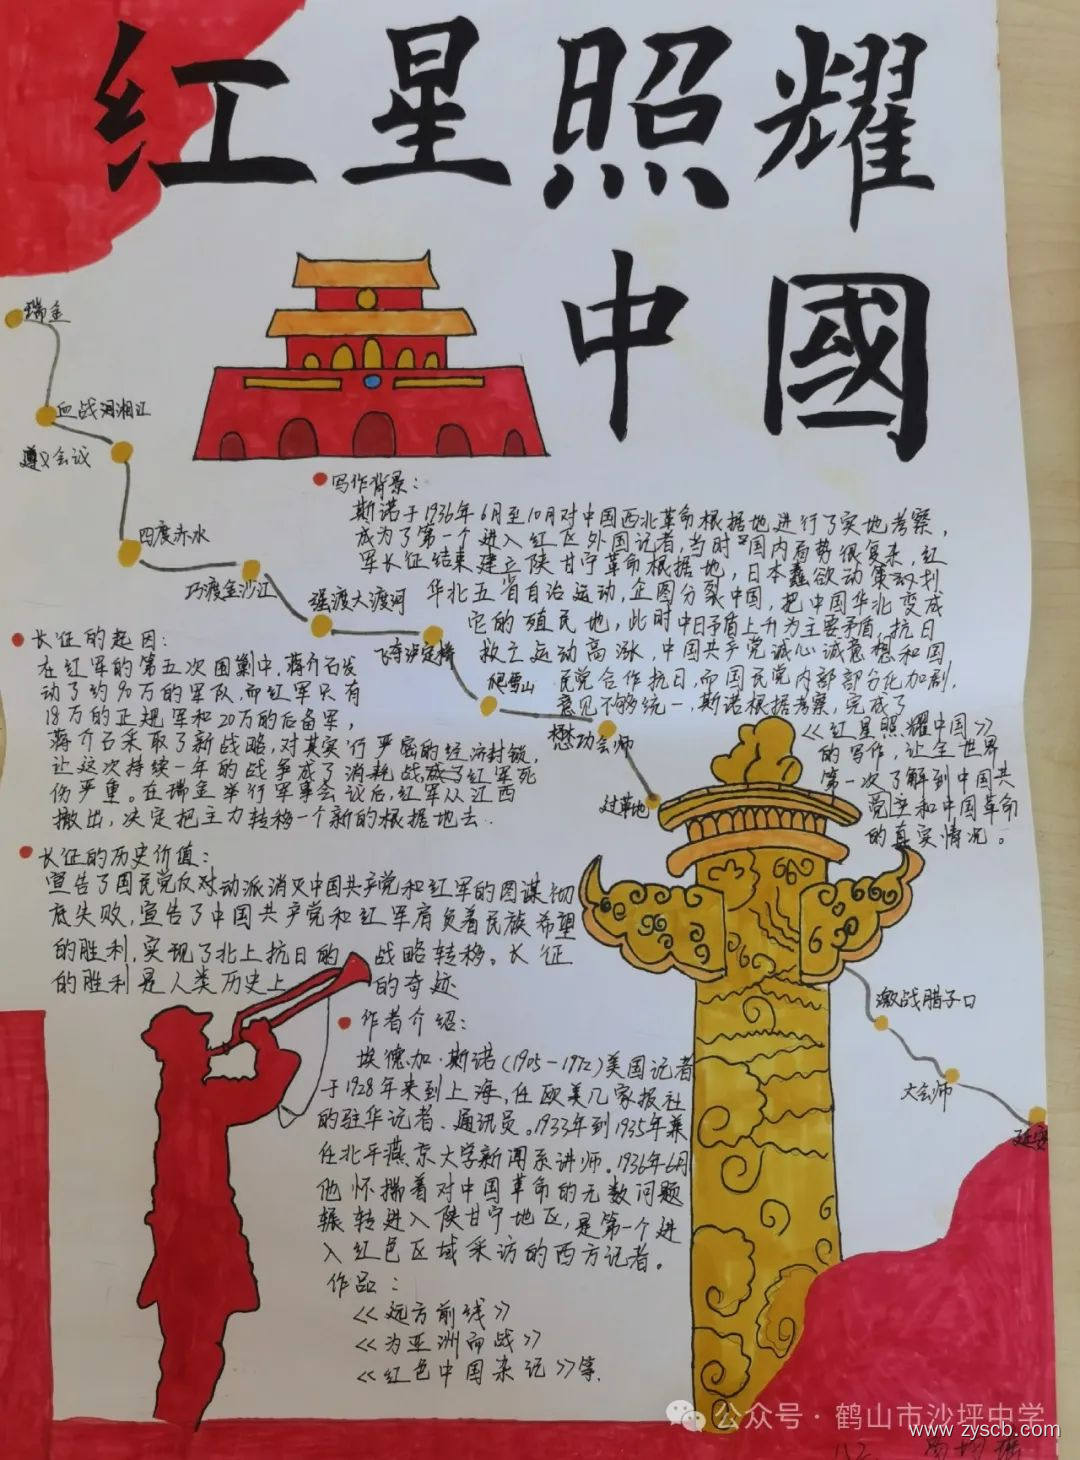 红星照耀
中國
瑞金
血战湘江
遵义会议
四度赤水
巧渡金沙江
强渡大渡河
飞夺泸定桥
爬雪山
懋功会师
过草地
激战腊子口
大会师
延安
写作背景：
斯诺于1936年6月至10月对中国西北革命根据地进行了实地考察，
成为了第一个进入红区外国记者，当时国内局势很复杂，红
军长征结束建立陕甘宁革命根据地，日本蠢欲动策划
华北五省自治运动，企图分裂中国，把中国华北变成
它的殖民地，此时中日矛盾上升为主要矛盾，抗日
救亡运动高涨，中国共产党诚心诚意想和国
民党合作抗日，而国民党内部部分化加剧，
意见不够统一，斯诺根据考察，完成了
《红星照耀中国》
的写作，让全世界
第一次了解到中国共
党和中国革命
的真实情况。
长征的起因：
在红军的第五次围剿中，蒋介石发
动了约90万的军队，而红军只有
18万的正规军和20万的后备军，
蒋介石采取了新战略，对其实行严密的经济封锁，
让这次持续一年的战争成了消耗战，成了红军死
伤严重。在瑞金举行军事会议后，红军从江西
撤出，决定把主力转移一个新的根据地去．
长征的历史价值：
宣告了国民党反对动派消灭中国共产党和红军的图谋彻
底失败，宣告了中国共产党和红军肩负着民族希望
的胜利，实现了北上抗日的 战略转移。长征
的胜利是人类历史上 的奇迹
作者介绍：
埃德加·斯诺（1905－1972）美国记者
于1928年来到上海，任欧美几家报社
的驻华记者、通讯员。1933年到1935年兼
任北平燕京大学新闻系讲师。1936年6月
他怀揣着对中国革命的无数问题
辗转进入陕甘宁地区，是第一个进
入红色区域采访的西方记者。
作品：
《远方前线》
《为亚洲而战》
《红色中国杂记》等．
公众号·鹤山市沙坪中学
www.zyscb.com